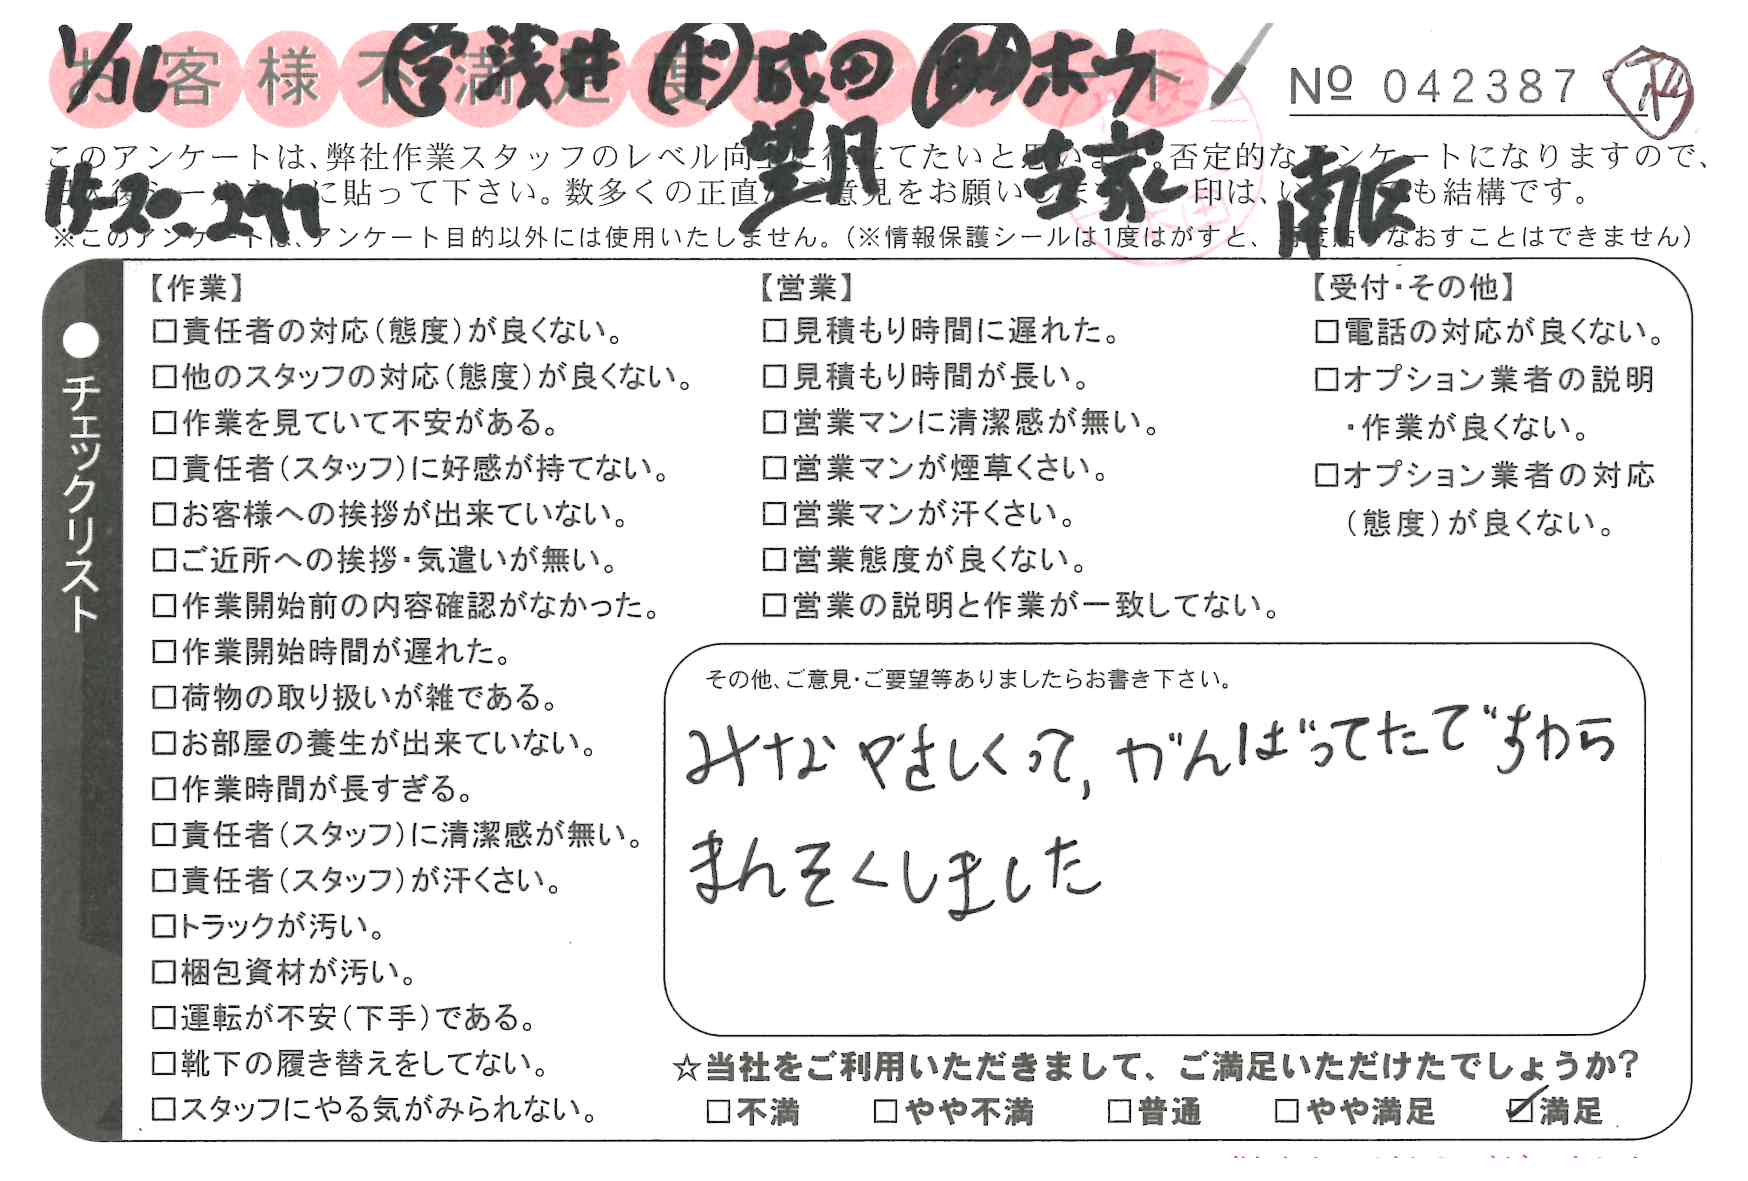 1/16 営 浅井 ド 成田 助 ホウ
お客様不満足度アンケート
No 042387
望月 古家 南辰
15-20.299
このアンケートは、弊社作業スタッフのレベル向上に役立てたいと思います。否定的なアンケートになりますので、
記入後シールを上に貼って下さい。数多くの正直なご意見をお願いします。 印は、いくつでも結構です。
※このアンケートは、アンケート目的以外には使用いたしません。(※情報保護シールは1度はがすと、再度貼りなおすことはできません)
●チェックリスト
【作業】
□責任者の対応(態度)が良くない。
□他のスタッフの対応(態度)が良くない。
□作業を見ていて不安がある。
□責任者(スタッフ)に好感が持てない。
□お客様への挨拶が出来ていない。
□ご近所への挨拶・気遣いが無い。
□作業開始前の内容確認がなかった。
□作業開始時間が遅れた。
□荷物の取り扱いが雑である。
□お部屋の養生が出来ていない。
□作業時間が長すぎる。
□責任者(スタッフ)に清潔感が無い。
□責任者(スタッフ)が汗くさい。
□トラックが汚い。
□梱包資材が汚い。
□運転が不安(下手)である。
□靴下の履き替えをしてない。
□スタッフにやる気がみられない。
【営業】
□見積もり時間に遅れた。
□見積もり時間が長い。
□営業マンに清潔感が無い。
□営業マンが煙草くさい。
□営業マンが汗くさい。
□営業態度が良くない。
□営業の説明と作業が一致してない。
【受付・その他】
□電話の対応が良くない。
□オプション業者の説明
・作業が良くない。
□オプション業者の対応
(態度)が良くない。
その他、ご意見・ご要望等ありましたらお書き下さい。
みな やさしくって, がんばってたですから
まんぞくしました
☆当社をご利用いただきまして、ご満足いただけたでしょうか?
□不満 □やや不満 □普通 □やや満足 ☑満足